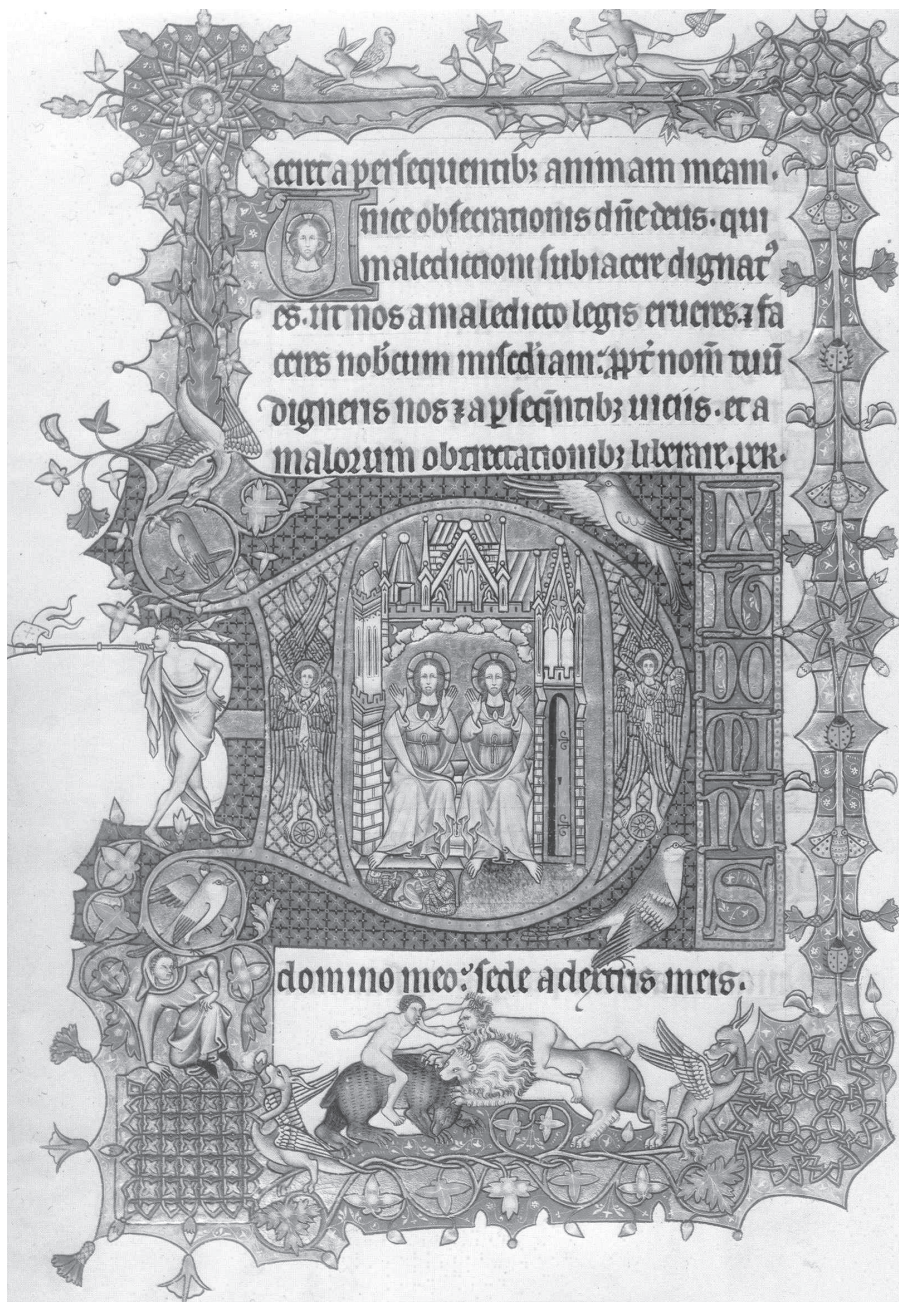 ceret a perſequentibꝫ animam meam.
Unice obſecrationis dn̄e deus. qui
maledictioni ſubiacere dignatꝰ
es. ut nos a maledicto legis erueres. ⁊ fa
ceres nob̄cum miſcd̄iam: ꝓpt̄ nom̄ tuū
digneris nos ⁊ a ꝑſeq̄ntibꝫ uiciis. et a
malorum obtrectationibꝫ liberare. per.
D
IX
IT
DO
MI
NU
S
domino meo: ſede a dextris meis.